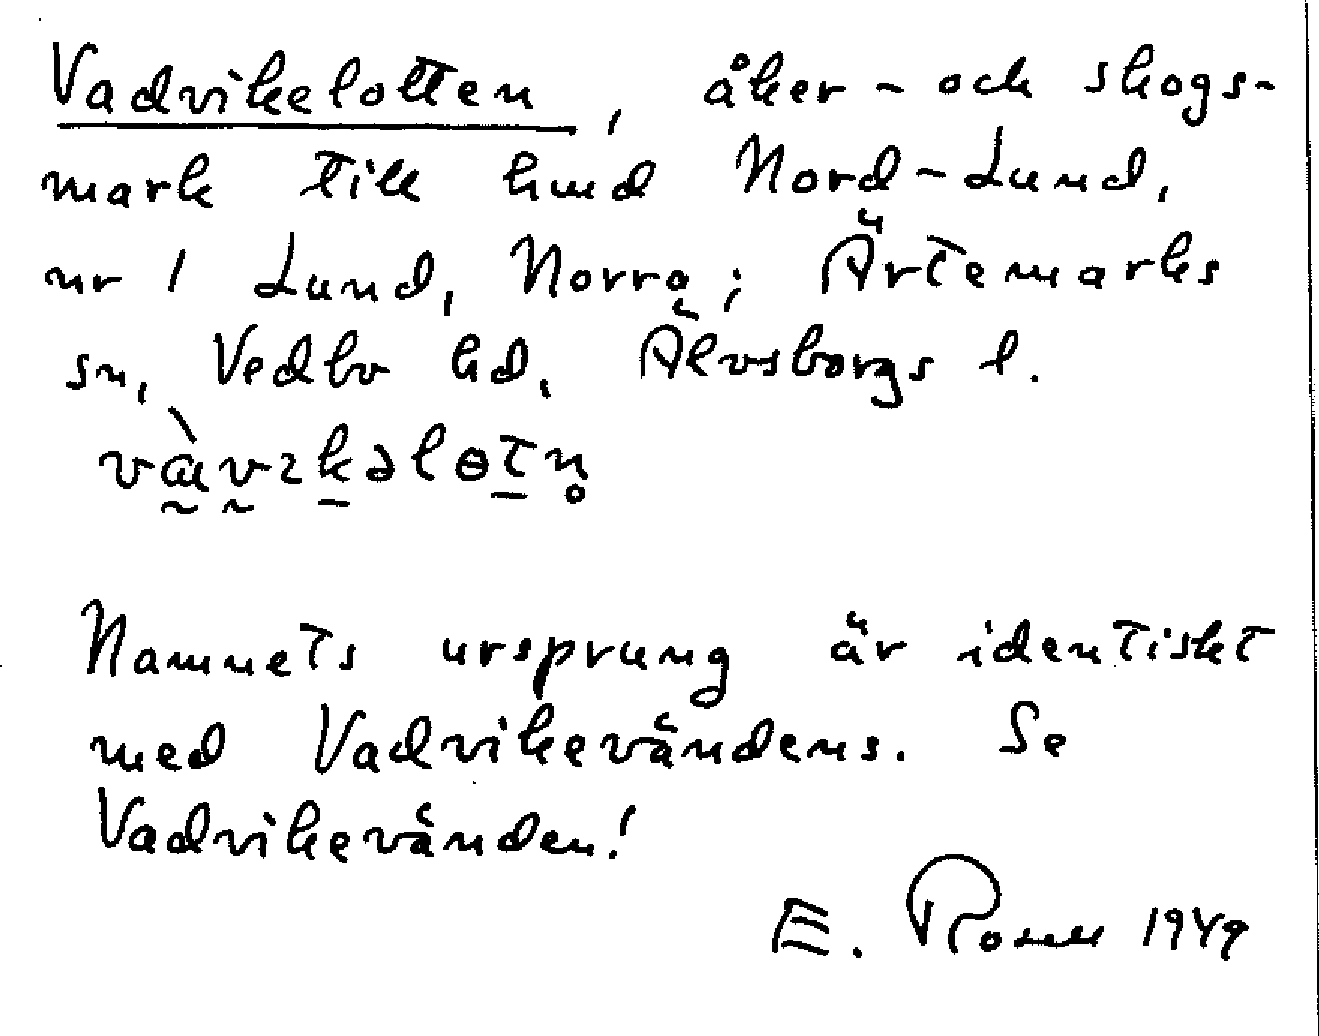 Vadvikelotten, åker- och skogs-
mark till hmd Nord-Lund,
nr 1 Lund, Norra; Ärtemarks
sn, Vedbo hd, Älvsborgs l.
Namnets ursprung är identiskt
med Vadvikevändens. Se
Vadvikevänden!
E. 1949